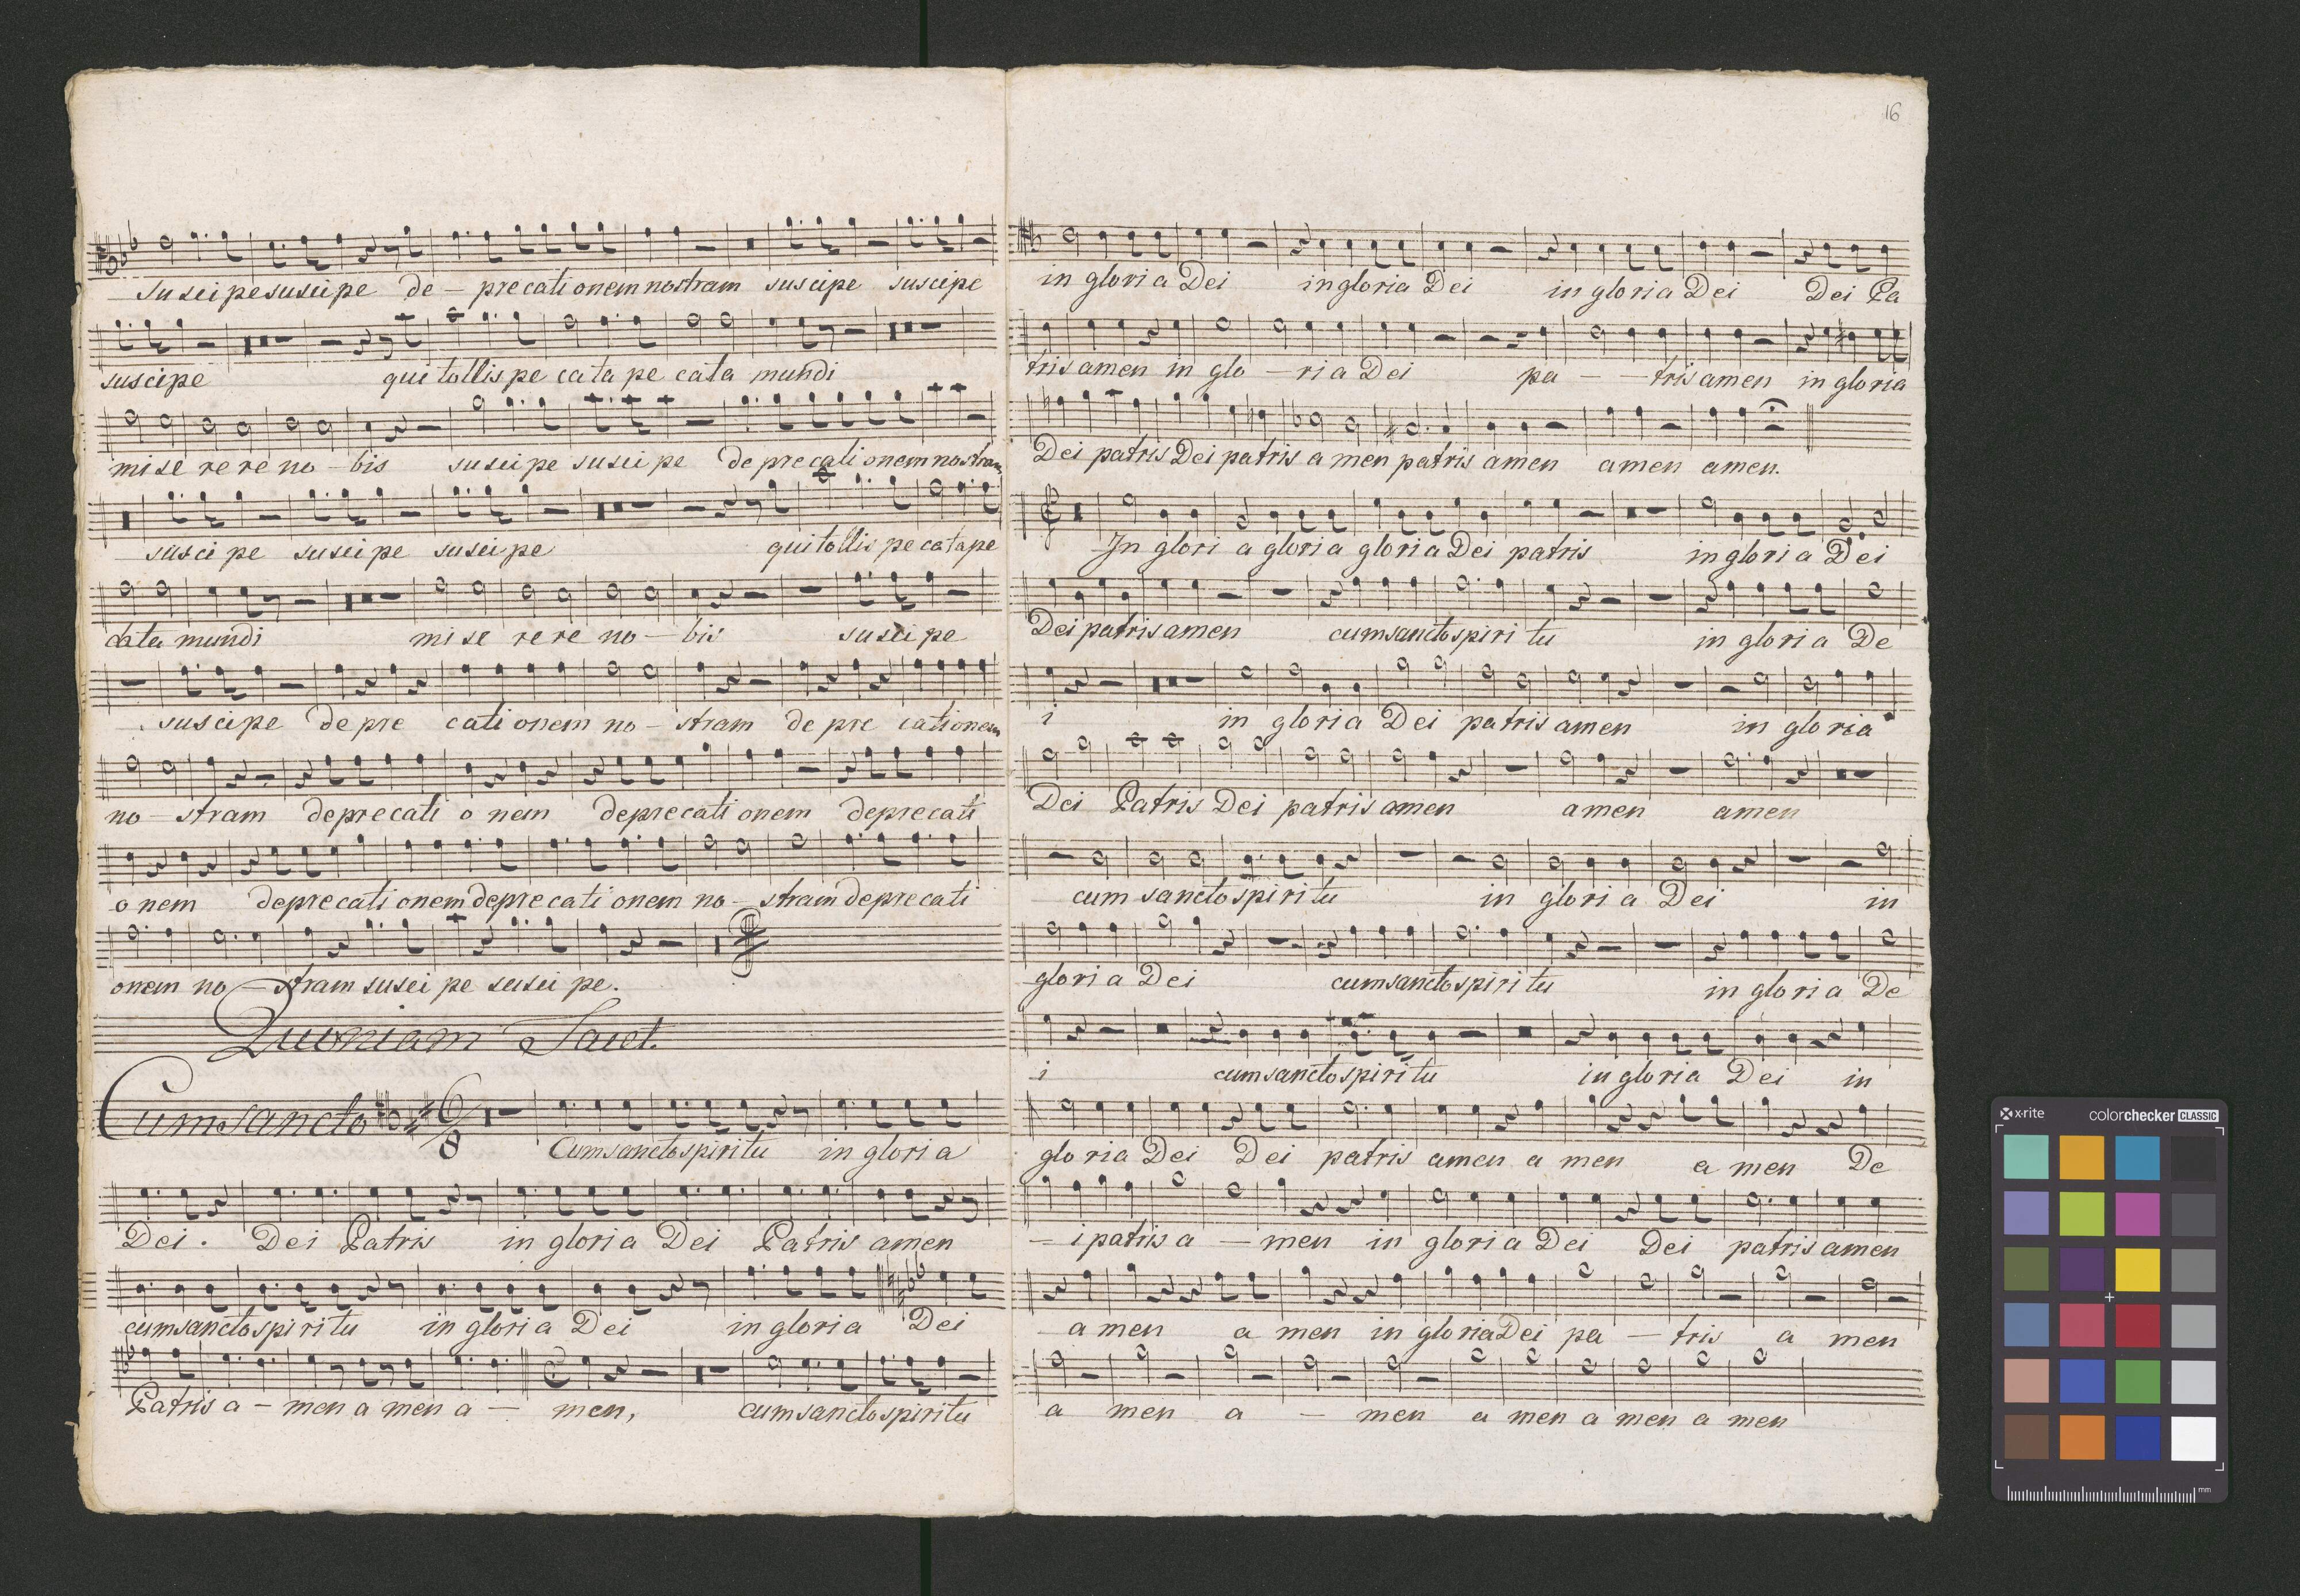 suscipe suscipe de - precationem nostram suscipe suscipe
suscipe qui tollis pe cata pe cata mundi
mise rere no - bis suscipe suscipe deprecationem nostram
suscipe suscipe suscipe qui tollis pe cata pe
cata mundi mise rere no - bis suscipe
suscipe depre cationem no - stram depre cationem
no - stram deprecati o nem deprecationem deprecati
o nem deprecationem deprecationem no - stram deprecati
onem no - stram suscipe suscipe.
Quoniam Tacet.
Cum sancto 6/8
Cum sancto spiritu in gloria
Dei. Dei Patris in gloria Dei Patris amen
cum sancto spiritu in gloria Dei in gloria Dei
Patris a - men a men a - men, cum sancto spiritu
16
in gloria Dei in gloria Dei in gloria Dei Dei Pa
tris amen in glo - ria Dei pa - - tris amen in gloria
Dei patris Dei patris a men patris amen amen amen.
In glori a gloria gloria Dei patris in gloria Dei
Dei patris amen cum sancto spiri tu in gloria De
i in gloria Dei patris amen in gloria
Dei Patris Dei patris amen amen amen
cum sancto spiritu in gloria Dei in
gloria Dei cum sancto spiri tu in gloria De
i cum sancto spiritu in gloria Dei in
gloria Dei Dei patris amen a men a men De
- i patris a - men in gloria Dei Dei patris amen
a men a men in gloria Dei pa - tris a men
a men a - men a men a men a men
x-rite colorchecker CLASSIC
mm